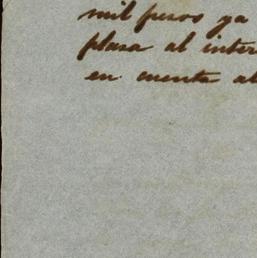 mil pesos ya
plasa al inter
en cuenta al